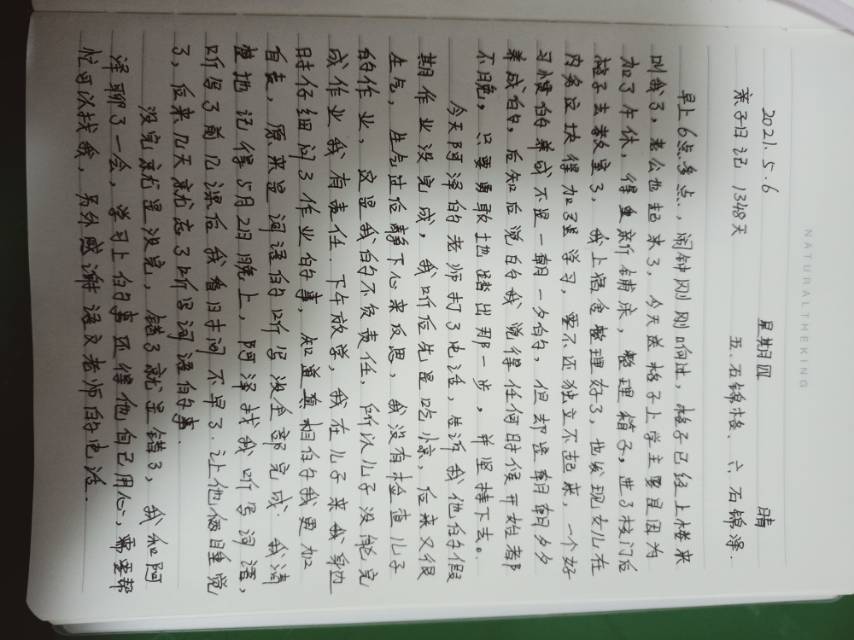 NATURALTHEKING
2021.5.6 星期四 晴
亲子日记 1348天 五.石锦格. 六.石锦泽.
早上6点多点,闹钟刚刚响过,格子已经上楼来
叫我了,老公也起来了,今天送格子上学主要是因为
加了午休,得重新铺床,整理箱子,进了校门后
格子去教室了,我上宿舍整理好了,也发现女儿在
内务这块得加强学习,要不还独立不起来,一个好
习惯的养成不是一朝一夕的,但却是朝朝夕夕
养成的,后知后觉的我觉得任何时候开始都
不晚,只要勇敢地踏出那一步,并坚持下去。
今天阿泽的老师打了电话,告诉我他的假
期作业没完成,我听后先是吃惊,后来又很
生气,生气过后静下心来反思,我没有检查儿子
的作业,这是我的不负责任,所以儿子没能完
成作业我有责任.下午放学,我在儿子来我身边
时仔细问了作业的事,知道真相的我更加
自责,原来是词语的听写没全部完成.我清
楚地记得5月2日晚上,阿泽找我听写词语,
听写了前几课后我看时间不早了.让他俩睡觉
了,后来几天就忘了听写词语的事.
没完就是没完,错了就是错了,我和阿
泽聊了一会,学习上的事还得他自己用心,需要帮
忙可以找我,另外感谢语文老师的电话.